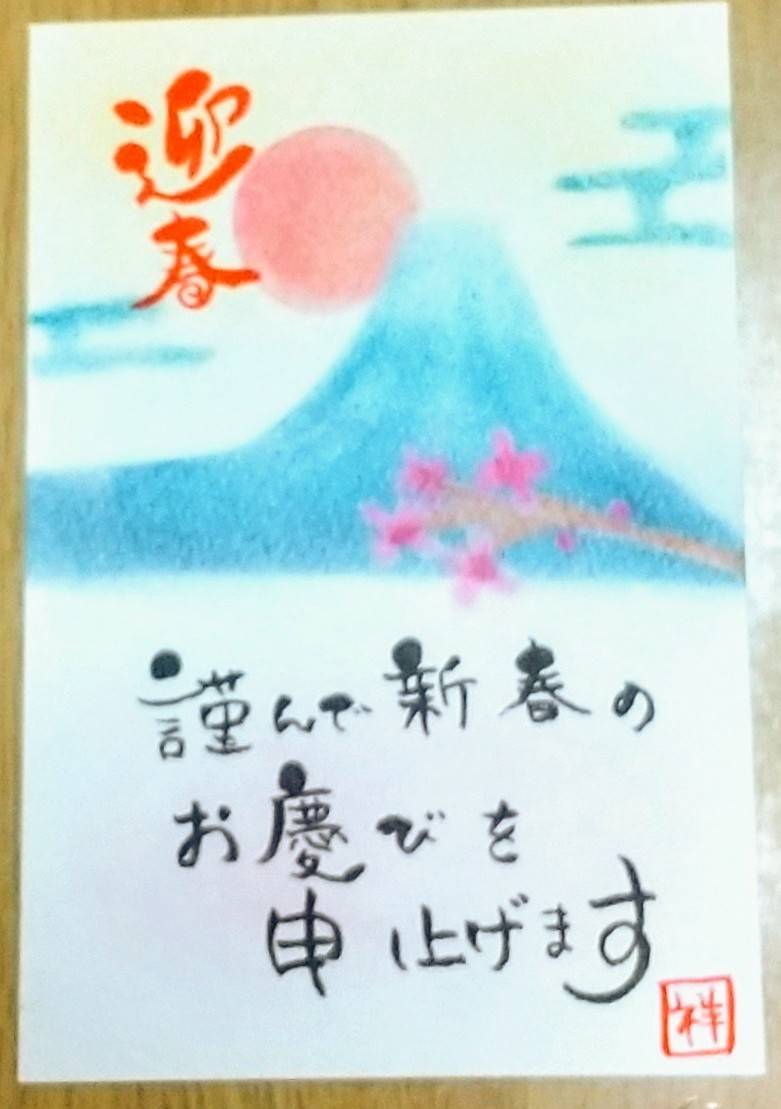 迎春
謹んで新春の
お慶びを
申上げます
祥